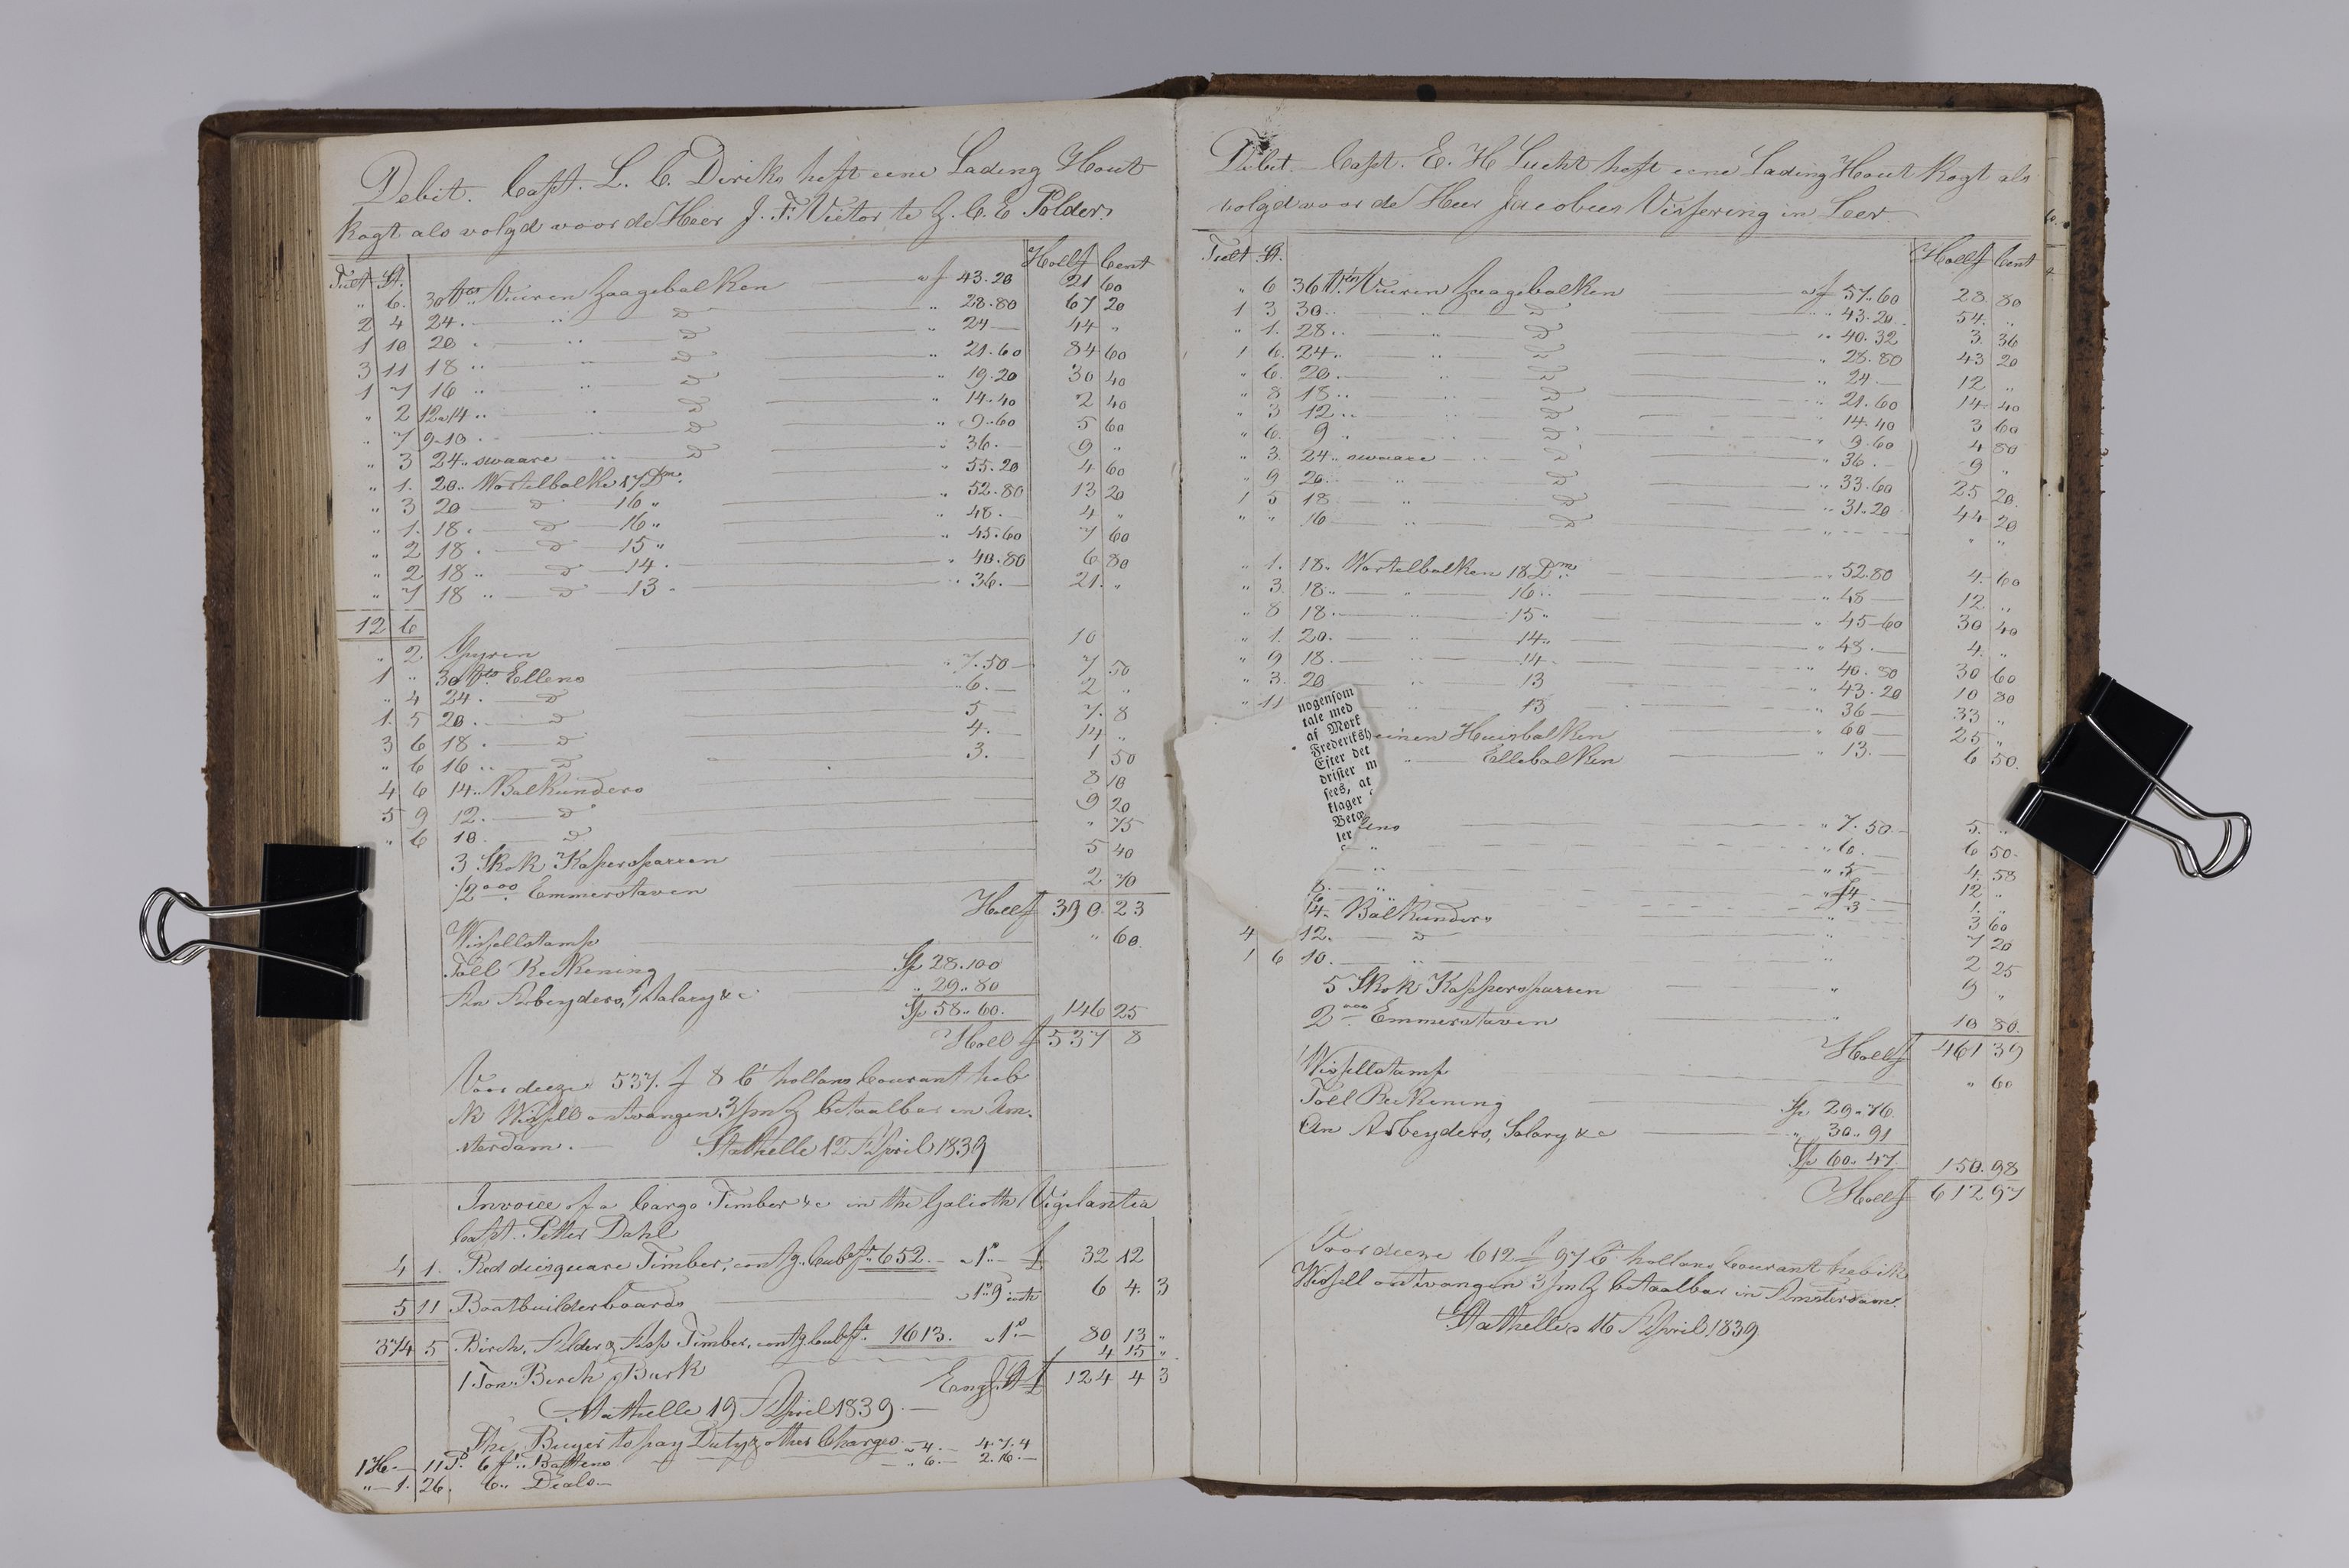 Debit. Capt. L. C. Diriks heft eene Lading Hout
kogt als volgd voor de Heer J. F. Victor te H. C. E. Polder,
Tult St. Hollf Cent
" 6. 30 Vuuren Zaagebalken a f 43.20 21 60
2 4 24. " D " 28.80 67 20
1 10 20 " D " 24 — 44 "
3 11 18 " D " 21.60 84 60
1 7 16 " D " 19.20 30 40
" 2 12 a 14 " D " 14.40 2 40
" 7 9-10 " D " 9.60 5 60
" 3 24 " swaare " D " 36. — 9 "
" 1. 20 " Wortelbalke 17 Dm. " 55.20 4 60
" 3 20 — D — 16 " " 52.80 13 20
" 1. 18. — D — 16 " " 48. — 4 "
" 2 18. — D — 15 " " 45.60 7 60
" 2 18 " — D — 14. " 40.80 6 80
" 7 18 " — D — 13 " 36. — 21. "
12 6
" 2 Spyren 10
1 " 30 Ellens " 7.50 7 50
" 4 24. — D " 6. — 2 "
1. 5 20. — D 5 — 7. 8
3 6 18. — D 4. — 14 "
" 6 16 " — D 3. 1 50
4 6 14 " Balkunders 8 10
5 9 12. — D 9 20
" 6 10. — D " 75
3 Skok Kaspersparren 5 40
1/2 ooo Emmerstaven 2 70
Hollf 390. 23
Wissellstamp " 60.
Toll Reckening Sp 28.100
An Arbeyders, Salary &c " 29.80
Sp 58.60. 146 25
Holl f 537 8
Voor deeze 537. f 8 Ct hollans Courant heb
ik Wissell ontvangen 3/m betaalbar in Am-
sterdam. — Stathelle 12 April 1839
Invoice of a Cargo Timber &c in the Galioth Vigilantia
Capt. Petter Dahl
4 1. Red die square Timber, contg. Cubft. 652. — a 1" — £ 32 12
5 11 Boatbuilderboards a 1" 9 6 4. 3
374 5 Birch, Alder & Asp Timber, contg Cubft. 1613. a 1" — 80 13 "
1 Ton Birch Bark 4 15 "
Engl. St £ 124 4 3
Stathelle 19 April 1839. —
The Buyer to pay Duty & other Charges a 4. — 4.7.4
1 H — 11 6 ft " Battens " 6. — 2.16. —
" — 1. 26. 6 " Deals —
Debit. Capt. E. H Lucht heft eene Lading Hout kogt als
volgd voor de Heer Jacobus Vissering in Leer
Tult St. Hollf Cent
" 6 36 Vuuren Zaagebalken a f 57.60 28. 80
1 3 30 " D " 43.20. 54. "
" 1. 28 " D " 40.32 3. 36
1 6. 24 " D " 28.80 43 20
" 6. 20. D " 24. — 12 "
" 8 18 " D " 21.60 14. 40
" 3 12 " D " 14.40 3 60
" 6. 9 " D " 9.60 4 80
" 3. 24 " swaare D " 36. — 9 "
" 9 20. " D " 33.60 25 20.
1 5 18 " D " 31.20 44 20
" " 16 " D " — " "
" 1. 18. Wortelbalken 18 Dm " 52.80 4. 60
" 3. 18 " — " 16 " " 48 — 12 "
" 8 18. — 15 " " 45-60 30 40
" 1. 20. — " 14 " " 48. — 4. "
" 9 18. — 14 " " 40.80 30 60
" 3. 20 " 13 " 43.20 10 80
" 11 " 13 " 36 — 33 "
einen Huisbalken " 60 — 25 "
" — Ellebalken " 13. — 6 50.
nogensom
tale med
af Mørk
Frederiksh
Efter det
drister m
sees, at
klager
Betæ
ler
ens " 7.50 — 5. "
" " 6. — 6 50.
" 5 — 4. 58
8. — " " 4 — 12 "
6. — " " 3 — 1. "
14. Balkunders " 3 60
4 12. — D " 7 20
1 6 10. — " " 2 25
5 Skok Kaspersparren " 9 "
2 ooo Emmerstaven " 10 80.
Hollf 461 39
Wissellstamp " 60
Toll Reckening Sp 29.76
An Arbeyders, Salary &c " 30.91
Sp 60.47. 150.98
Hollf 612 97
Voor deeze 612 f 97 Ct hollans Courant heb ik
Wissell ontvangen 3/m betaalbar in Amsterdam.
Stathelle 16 April 1839